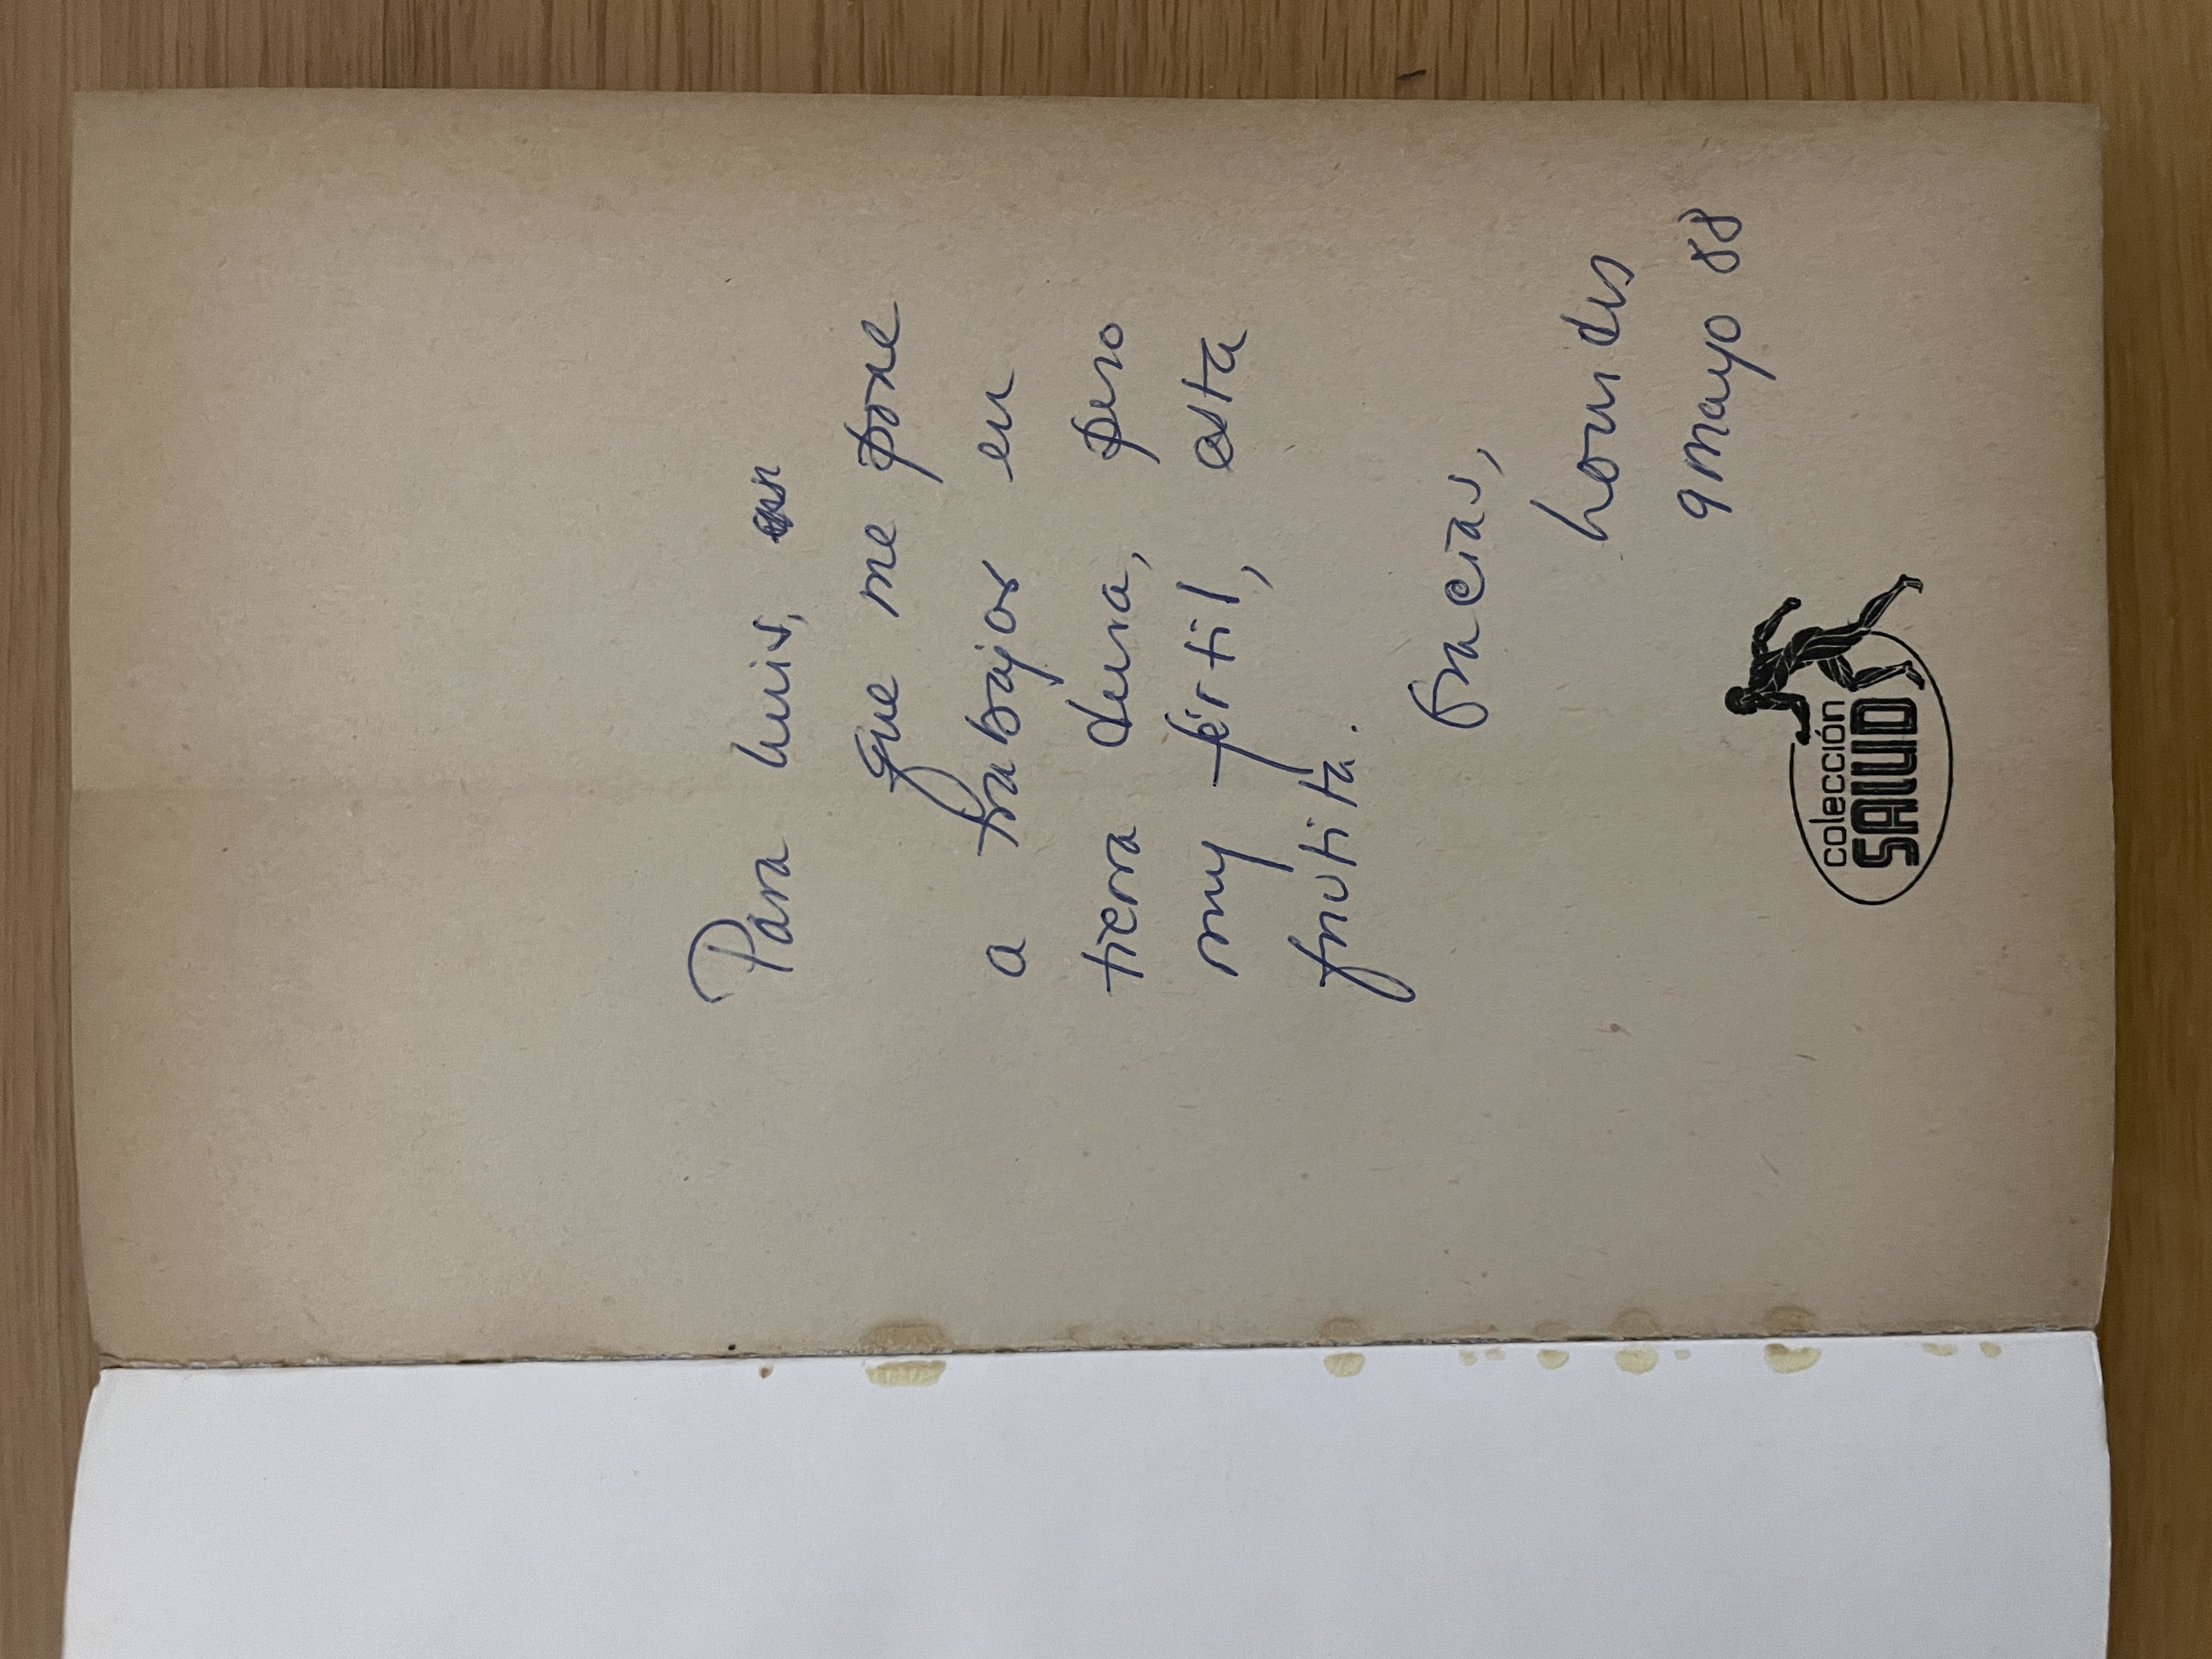 Para Luis,
que me pone
a trabajar en
tierra dura, pero
muy fértil, esta
frutita.
Gracias,
Lourdes
9 mayo 88
colección
SALUD